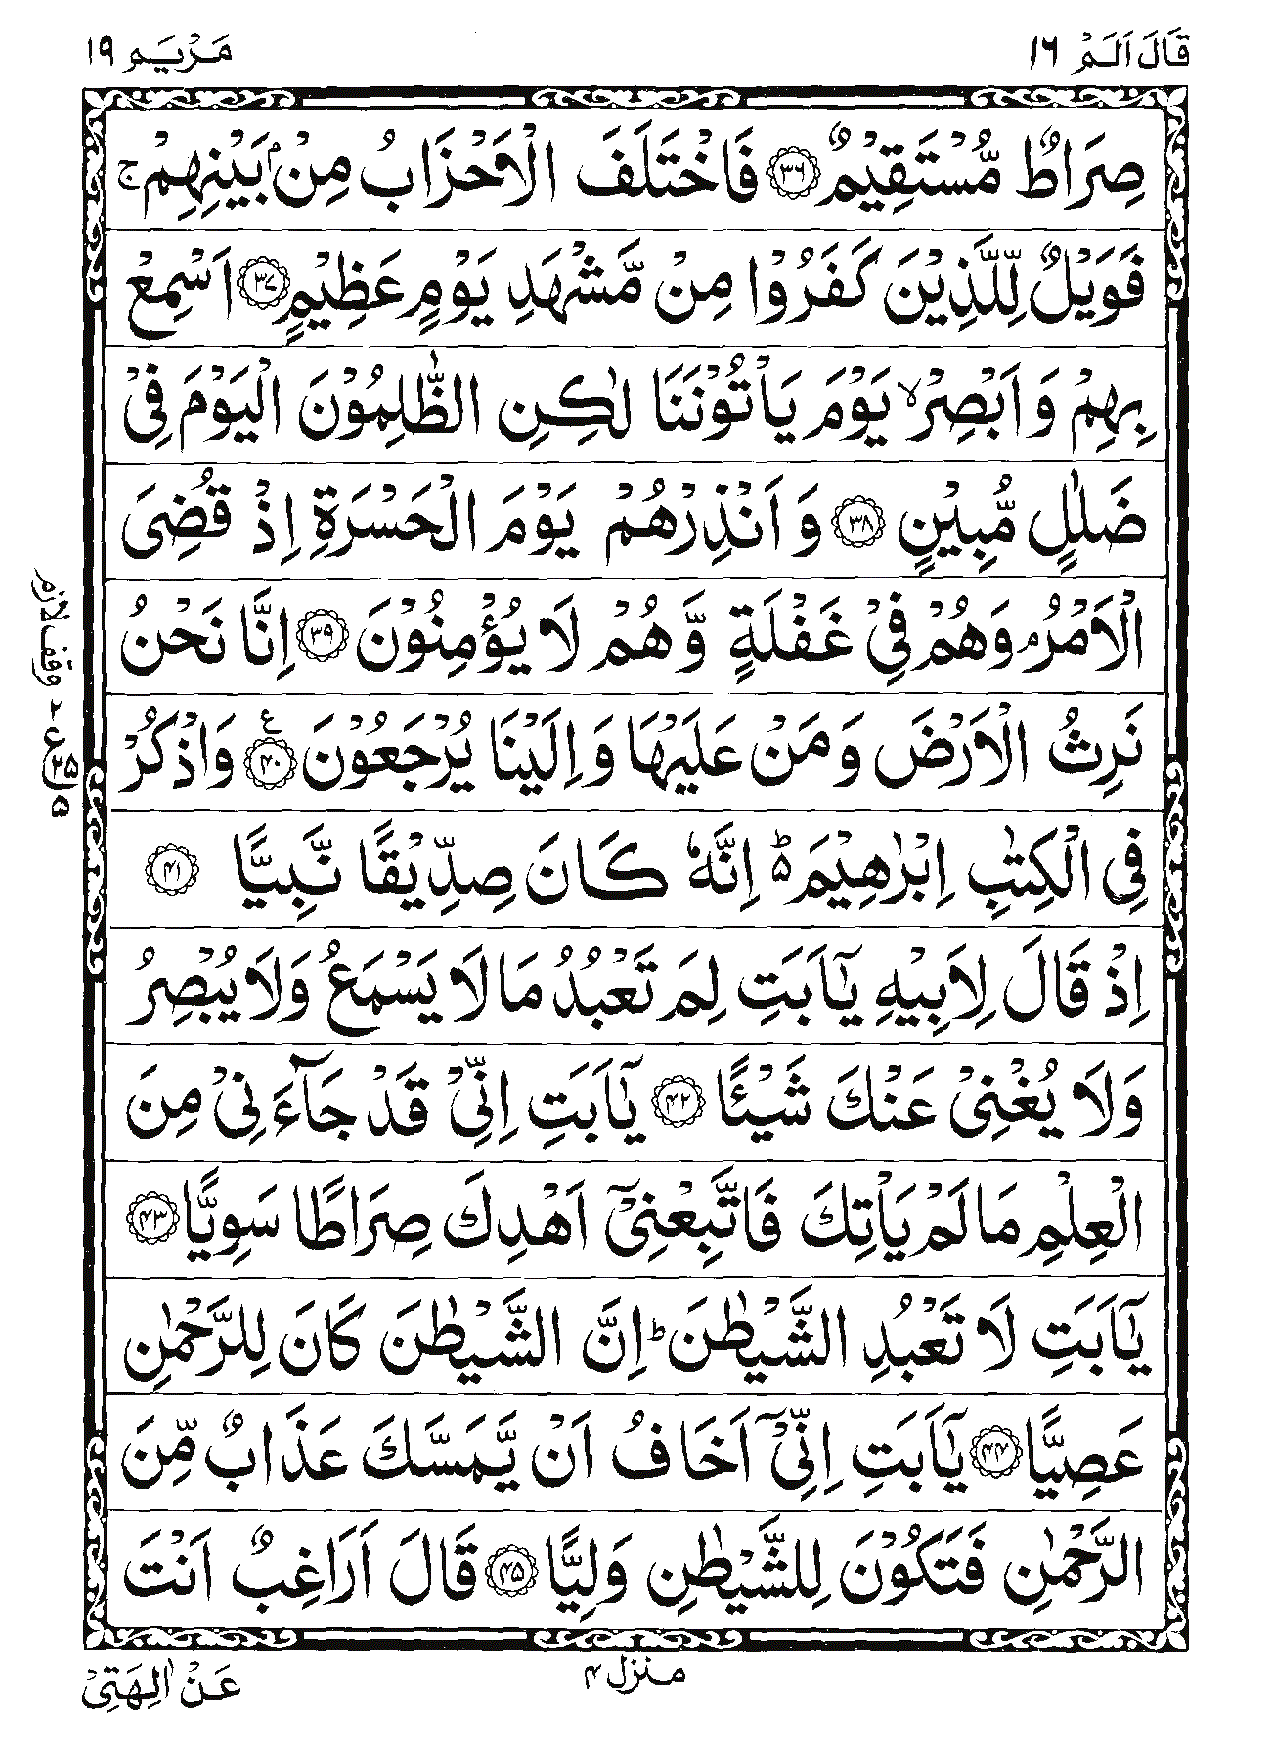 قَالَ اَلَمْ ١٦
مَرْيَم ١٩
صِرَاطٌ مُّسْتَقِيْمٌ ﴿۳۶﴾ فَاخْتَلَفَ الْاَحْزَابُ مِنْۢ بَيْنِهِمْ ۚ
فَوَيْلٌ لِّلَّذِيْنَ كَفَرُوْا مِنْ مَّشْهَدِ يَوْمٍ عَظِيْمٍ ﴿۳۷﴾ اَسْمِعْ
بِهِمْ وَ اَبْصِرْ ۙ يَوْمَ يَاْتُوْنَنَا لٰكِنِ الظّٰلِمُوْنَ الْيَوْمَ فِىْ
ضَلٰلٍ مُّبِيْنٍ ﴿۳۸﴾ وَ اَنْذِرْهُمْ يَوْمَ الْحَسْرَةِ اِذْ قُضِىَ
الْاَمْرُ ۘ وَهُمْ فِىْ غَفْلَةٍ وَّ هُمْ لَا يُؤْمِنُوْنَ ﴿۳۹﴾ اِنَّا نَحْنُ
نَرِثُ الْاَرْضَ وَ مَنْ عَلَيْهَا وَ اِلَيْنَا يُرْجَعُوْنَ ﴿۴۰﴾ ع وَاذْكُرْ
فِى الْكِتٰبِ اِبْرٰهِيْمَ ۥؕ اِنَّهٗ كَانَ صِدِّيْقًا نَّبِيًّا ﴿۴۱﴾
اِذْ قَالَ لِاَبِيْهِ يٰۤاَبَتِ لِمَ تَعْبُدُ مَا لَا يَسْمَعُ وَلَا يُبْصِرُ
وَلَا يُغْنِىْ عَنْكَ شَيْـًٔا ﴿۴۲﴾ يٰۤاَبَتِ اِنِّىْ قَدْ جَآءَنِىْ مِنَ
الْعِلْمِ مَا لَمْ يَاْتِكَ فَاتَّبِعْنِىْۤ اَهْدِكَ صِرَاطًا سَوِيًّا ﴿۴۳﴾
يٰۤاَبَتِ لَا تَعْبُدِ الشَّيْطٰنَ ؕ اِنَّ الشَّيْطٰنَ كَانَ لِلرَّحْمٰنِ
عَصِيًّا ﴿۴۴﴾ يٰۤاَبَتِ اِنِّىْۤ اَخَافُ اَنْ يَّمَسَّكَ عَذَابٌ مِّنَ
الرَّحْمٰنِ فَتَكُوْنَ لِلشَّيْطٰنِ وَلِيًّا ﴿۴۵﴾ قَالَ اَرَاغِبٌ اَنْتَ
وقف لازم
ع
۲
۲۵
۵
منزل ۴
عَنْ اٰلِهَتِىْ